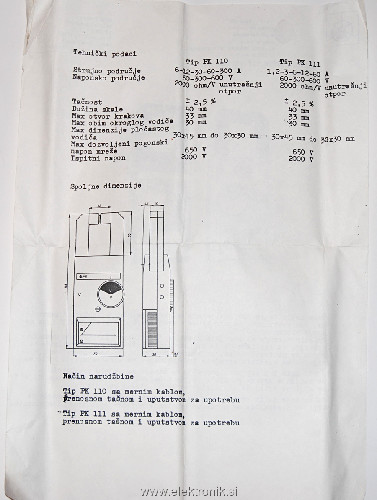 Tehnički podaci
Tip PK 110 Tip PK 111
Strujno područje 6-12-30-60-300 A 1,2-3-6-12-60 A
Naponsko područje 30-300-600 V 60-300-600 V
2000 ohm/V unutrašnji otpor 2000 ohm/V unutrašnji otpor
Tačnost ± 2,5 % ± 2,5 %
Dužina skale 40 mm 40 mm
Max otvor krakova 33 mm 33 mm
Max obim okroglog vodiča 30 mm 30 mm
Max dimenzije pločastog
vodiča 30x45 mm do 30x30 mm 30x45 mm do 30x30 mm
Max dozvoljeni pogonski
napon mreže 650 V 650 V
Ispitni napon 2000 V 2000 V
Spoljne dimenzije
Način narudžbine
Tip PK 110 sa mernim kablom,
prenosnom tačnom i uputstvom za upotrebu
Tip PK 111 sa mernim kablom,
prenosnom tačnom i uputstvom za upotrebu
www.elektronik.si